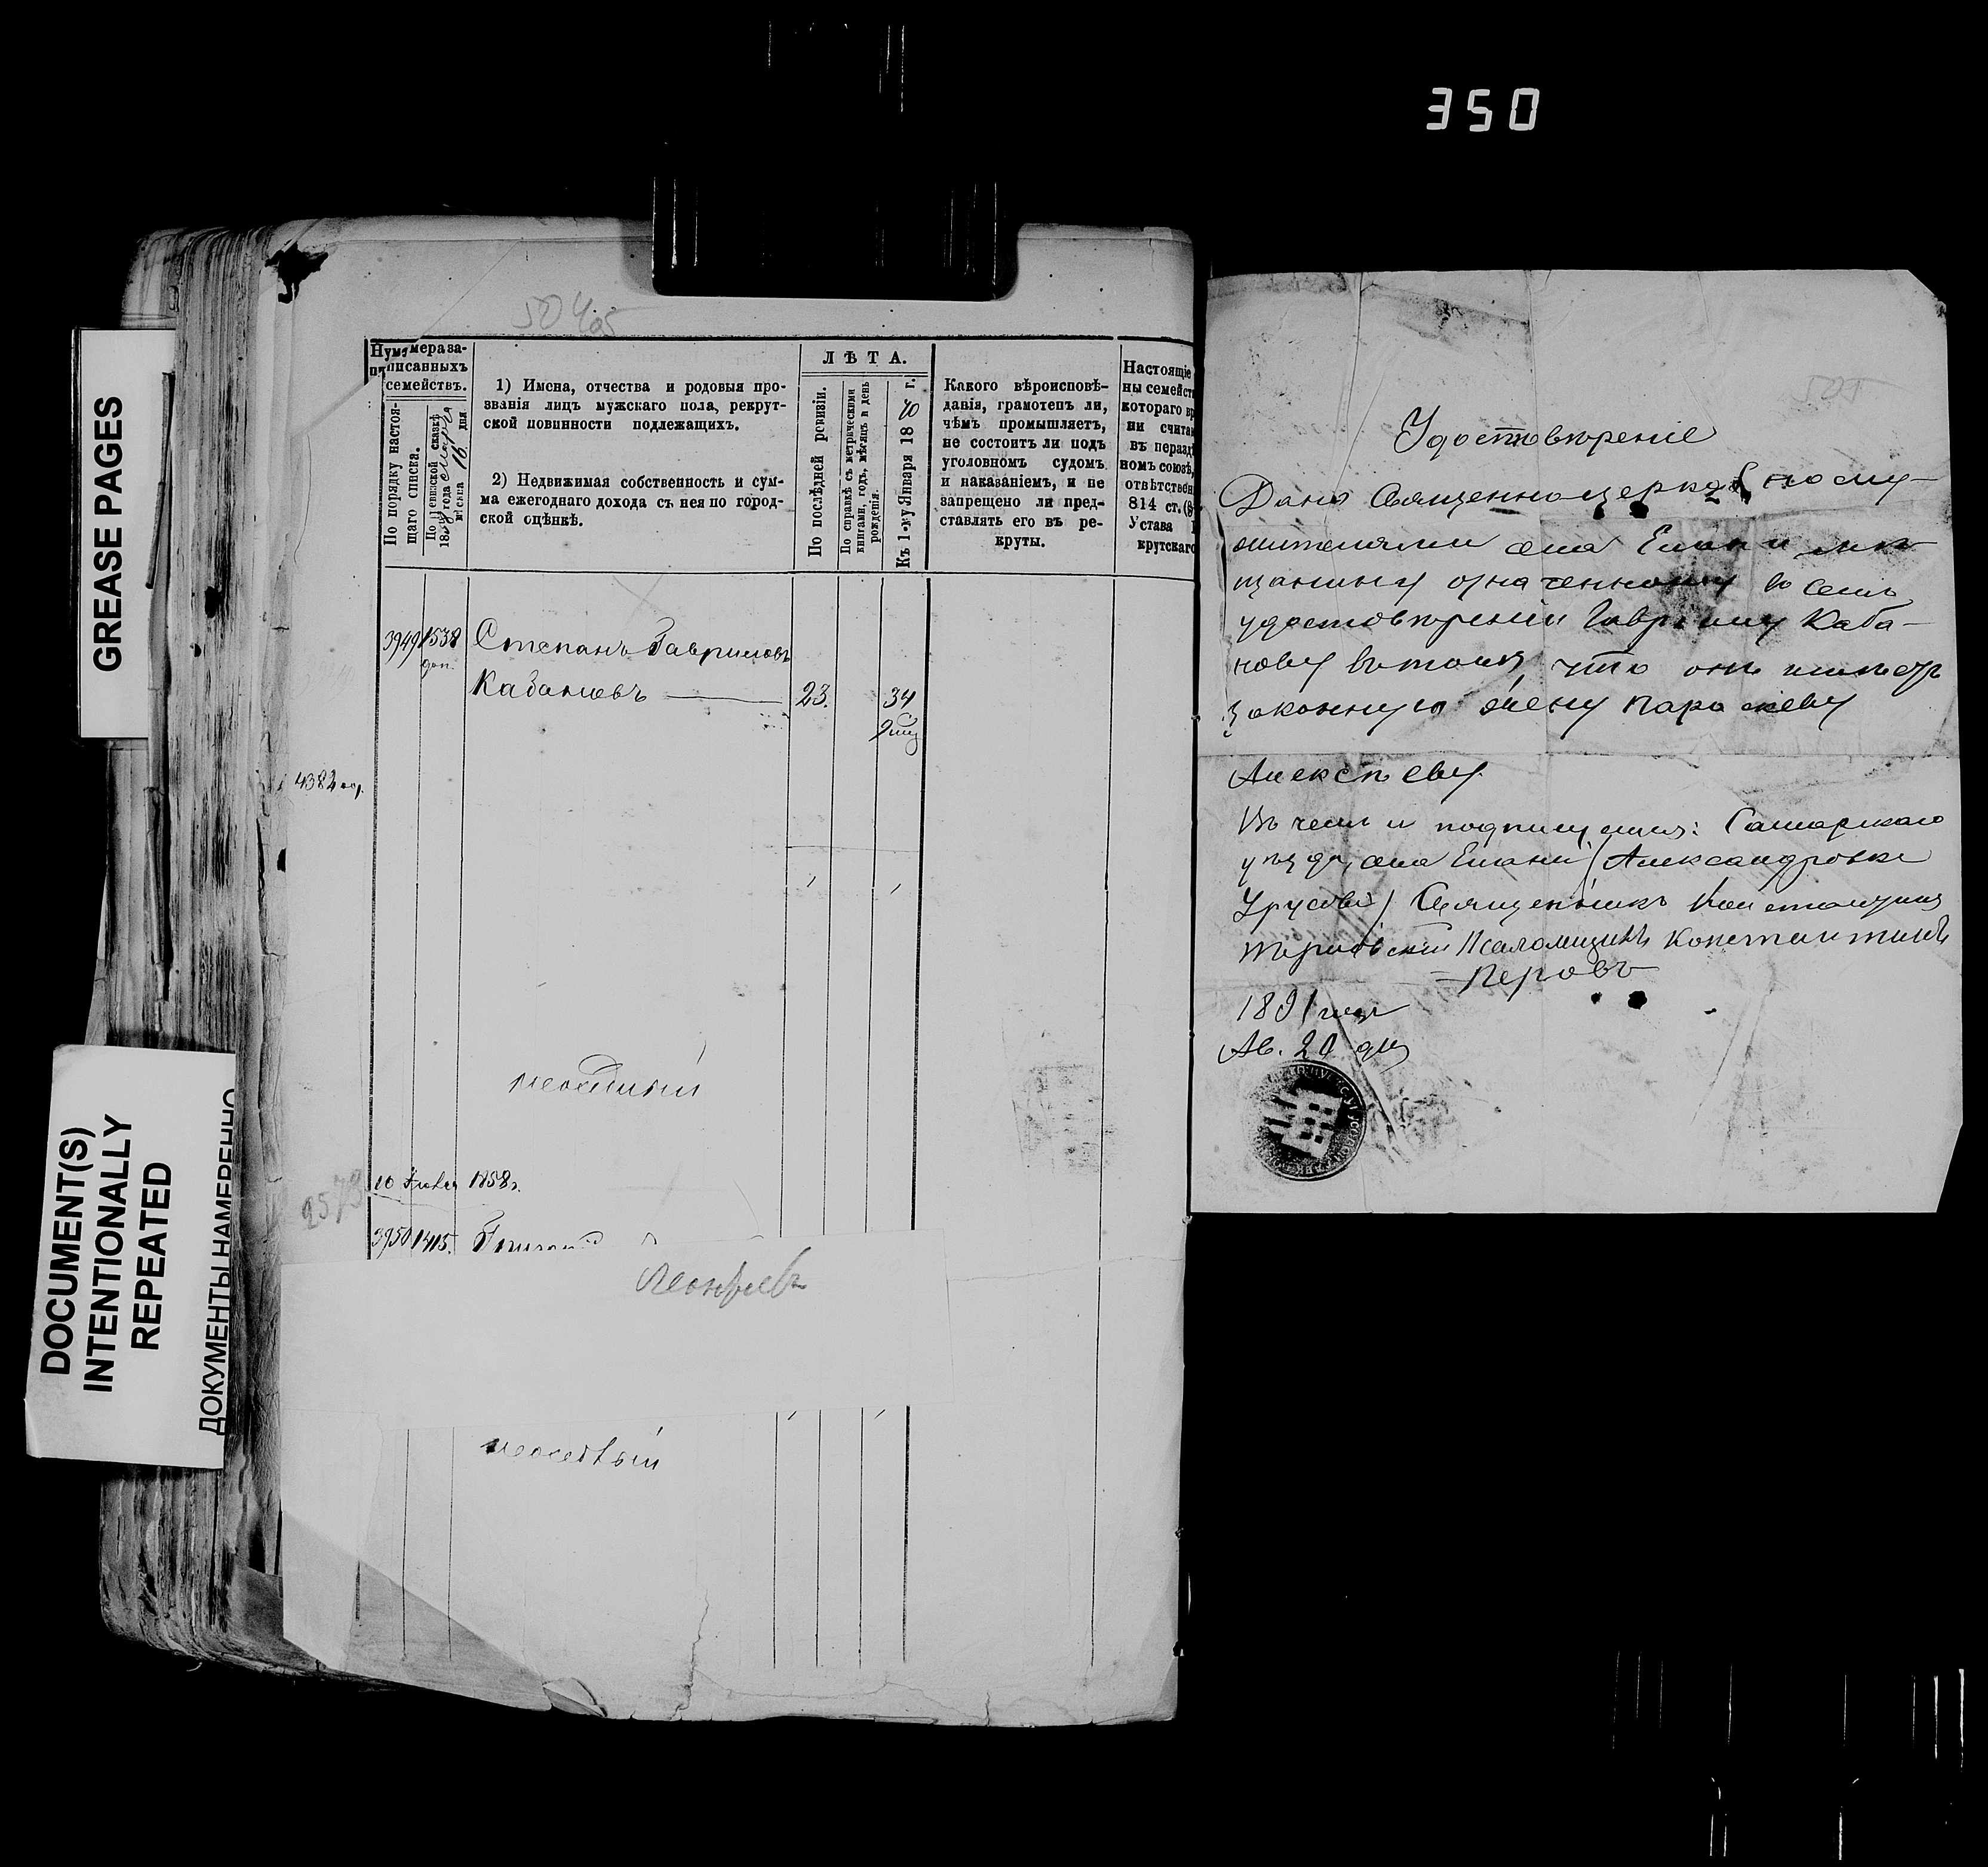 350
GREASE PAGES
DOCUMENT(S)
INTENTIONALLY
REPEATED
ДОКУМЕНТЫ НАМЕРЕННО
504
Нумера за-
писанныхъ
семействъ.
По порядку настоя-
щаго списка.
По ревизской сказкѣ
18 года Марта
мѣсяца 16 дня
1) Имена, отчества и родовыя про-
званія лицъ мужскаго пола, рекрут-
ской повинности подлежащихъ.
2) Недвижимая собственность и сум-
ма ежегоднаго дохода съ нея по город-
ской оцѣнкѣ.
ЛѢТА.
По послѣдней ревизіи.
По справкѣ съ метрическими
книгами, годъ, мѣсяцъ и день
рожденія.
Къ 1-му Января 1870 г.
Какого вѣроисповѣ-
данія, грамотенъ ли,
чѣмъ промышляетъ,
не состоитъ ли подъ
уголовномъ судомъ
и наказаніемъ, и не
запрещено ли пред-
ставлять его въ ре-
круты.
Настоящіе
ны семейст
котораго вр
ни счита
въ неразд
номъ союзѣ,
отвѣтствен
814 ст.
Устава
крутскаго
3949 1538 Степанъ Гавриловъ
доп.
Кабановъ 23. 34
4382
неоседлый
10 1858 г.
2573
3950 1415. Григорій
Леонтьевъ
неоседлый
505
Удостовѣреніе
Дано Священноцерковнослу-
жителями села Елани мѣ-
щанину означенному въ семъ
удостовѣреніи Гаврилу Каба-
нову въ томъ, что онъ имѣетъ
законную жену Параскеву
Алексѣеву.
Въ чемъ и подпишемся: Самарскаго
уѣзда, села Елани (Александровка
Урусово) Священникъ Константинъ
Терновскій Псаломщикъ Константинъ
Перовъ
1891 года
Ав. 20 дня